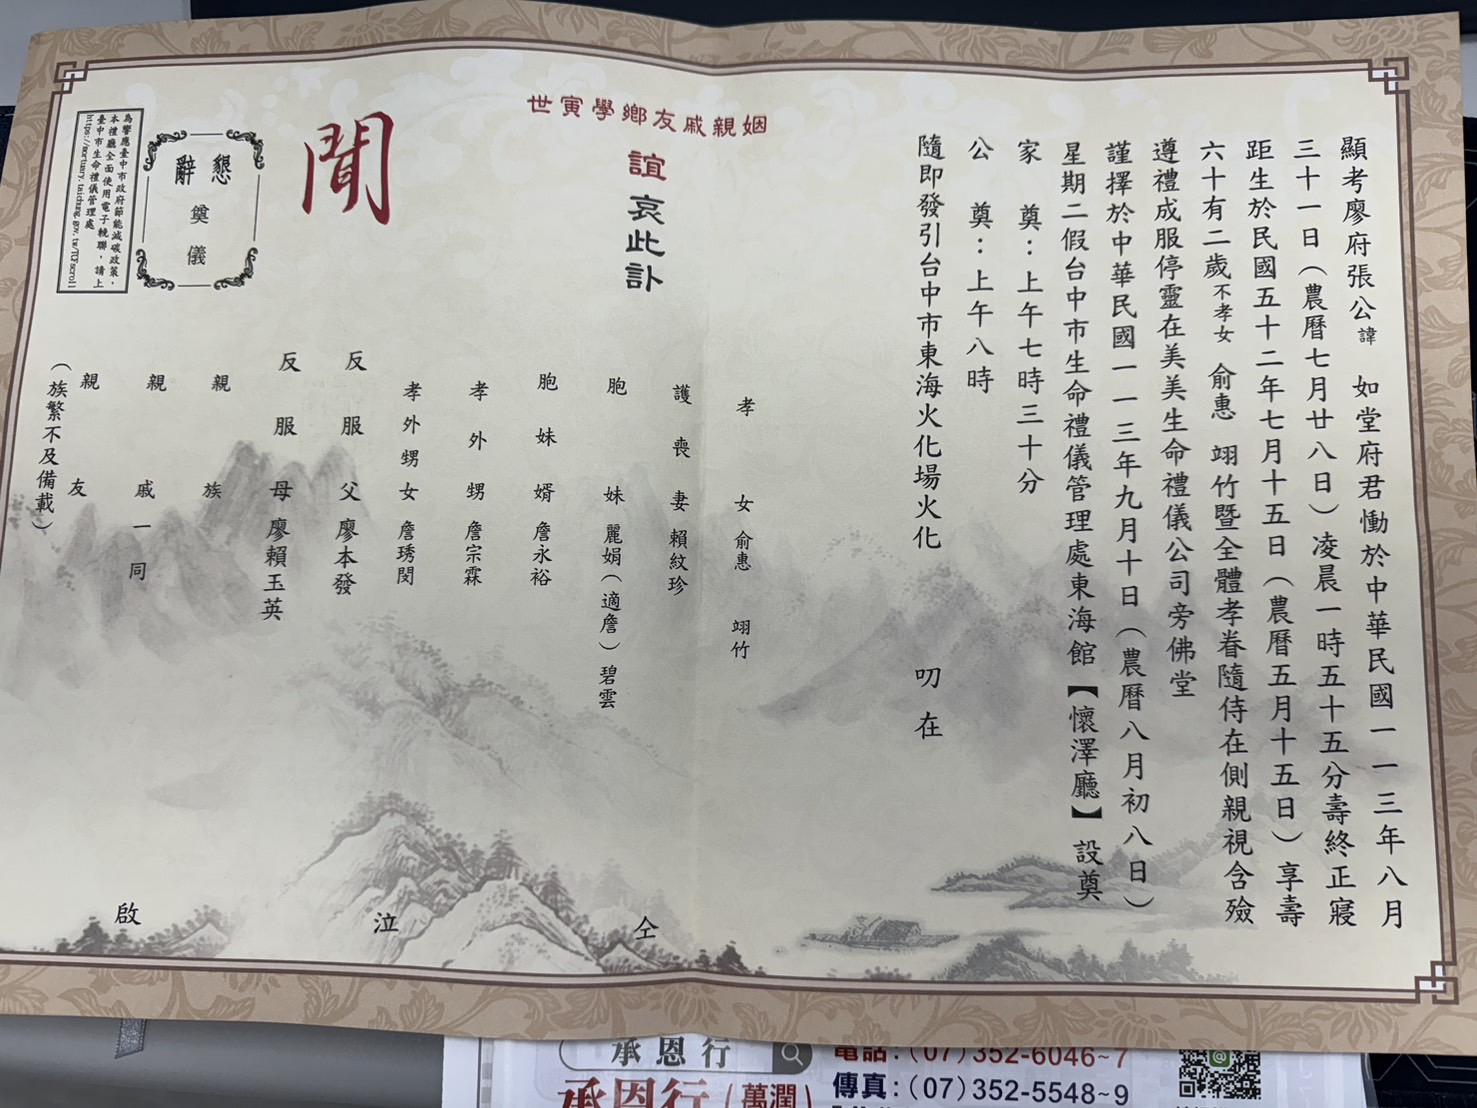 顯考廖府張公諱 如堂府君慟於中華民國一一三年八月
三十一日（農曆七月廿八日）凌晨一時五十五分壽終正寢
距生於民國五十二年七月十五日（農曆五月十五日）享壽
六十有二歲不孝女 俞惠 翊竹暨全體孝眷隨侍在側親視含殮
遵禮成服停靈在美美生命禮儀公司旁佛堂
謹擇於中華民國一一三年九月十日（農曆八月初八日）
星期二假台中市生命禮儀管理處東海館【懷澤廳】設奠
家 奠：上午七時三十分
公 奠：上午八時
隨即發引台中市東海火化場火化 叨在
姻親戚友鄉學寅世
誼哀此訃
聞
孝 女 俞惠 翊竹
護喪妻 賴紋珍
胞妹 麗娟（適詹）碧雲
胞妹婿 詹永裕
孝外甥 詹宗霖
孝外甥女 詹琇閔
反服父 廖本發
反服母 廖賴玉英
親族
親戚一同
親友
（族繁不及備載）
仝
泣
啟
懇辭
奠儀
為響應臺中市政府節能減碳政策，
本禮廳全面使用電子輓聯，請上
臺中市生命禮儀管理處
https://mortuary.taichung.gov.tw/TCFscroll
承恩行
承恩行（萬潤）
電話：(07)352-6046~7
傳真：(07)352-5548~9